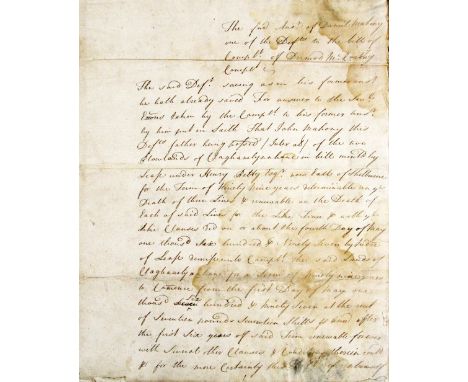 The furd Ansr. of Daniel Mahony
one of the Defts. to the bill of
Complt. of Dermod McCarthy
Complt.
The said Deft. saving as in his former ansr.
he hath already saved For answer to the
taken by the Complt. to his former answr.
by him put in Saith That John Mahony this
Defts father being possessd (Inter alia) of the two
Plowlands of in bill mentd by
Lease under Henry Petty Esqr. now Earle of Shelburne
for the Term of Ninety Nine years determinable on ye
Death of three Lives & renewable on the Death of
Each of said Lives for the Like Term & with ye
like Clauses did on or about the fourth Day of May
one thousd. Six hundred & Ninety Seven by Indre
of Lease demise unto Complt. the said Lands of
for a Term of Ninety nine years
to Comence from the first Day of May one
thousd hundred & Ninety Seven at the rent
of Seventeen pounds Seventeen Shills & after
the first Six years of said Term renewable forever
with Several other Clauses & therein
& for the more Certainty this